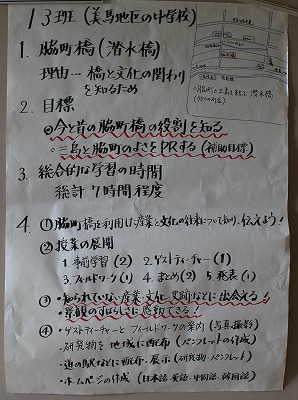 13班 (美馬地区の中学校)
1. 脇町橋 (潜水橋)
理由… 橋と文化の関わり
を知るため
○脇町と三島を結ぶ 潜水橋
2. 目標
◎今と昔の脇町橋の役割を知る
○三島と脇町のよさをPRする (補助目標)
3. 総合的な学習の時間
総計 7時間程度
4. ① 脇町橋を利用した産業と文化の往来について知り、伝えよう!
② 授業の展開
1. 事前学習 (2) 2. ゲストティーチャー (1)
3. フィールドワーク (1) 4. まとめ (2) 5. 発表 (1)
③ ・知られていない産業・文化・史跡などに出会える!
・景観のすばらしさに感動できる!
④ ・ゲストティーチャーとフィールドワークの案内 (写真撮影)
・研究物を地域に配布 (パンフレットの作成)
・道の駅などに配布・展示 (研究物・パンフレット)
・ホームページの作成 (日本語・英語・中国語・韓国語)